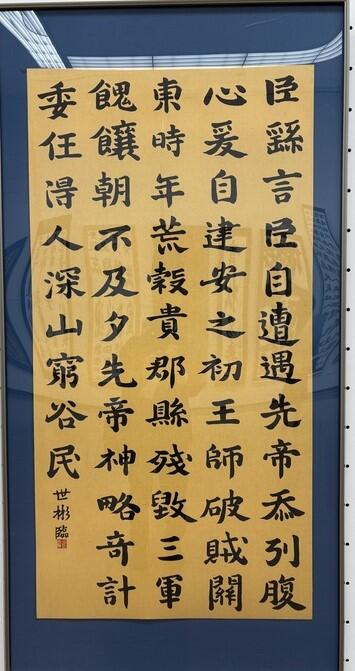 臣繇言臣自遭遇先帝忝列腹
心爰自建安之初王師破賊關
東時年荒穀貴郡縣殘毀三軍
餽饟朝不及夕先帝神略奇計
委任得人深山窮谷民
世彬臨